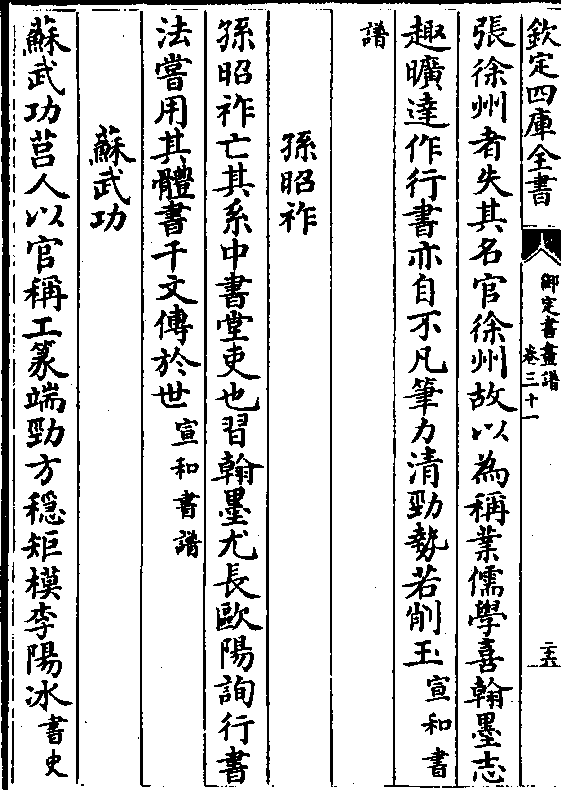 欽定四庫全書
御定書畫譜
卷三十一
二十六
張徐州者失其名官徐州故以為稱業儒學喜翰墨志
趣曠達作行書亦自不凡筆力清勁勢若削玉宣和書
譜
孫昭祚
孫昭祚亡其系中書堂吏也習翰墨尤長歐陽詢行書
法嘗用其體書千文傳於世宣和書譜
蘇武功
蘇武功莒人以官稱工篆端勁方穩矩模李陽冰書史